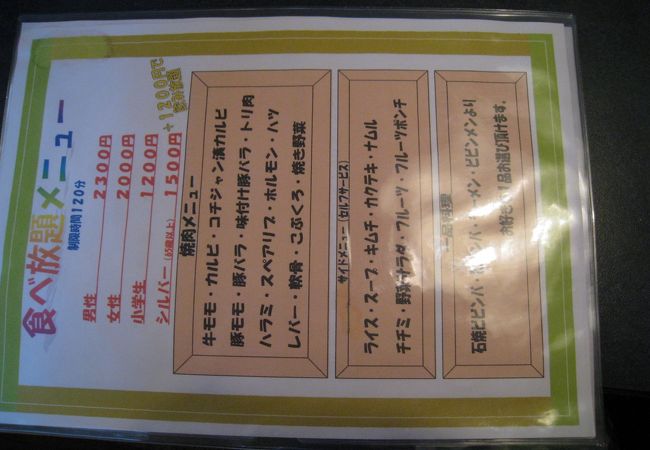 食べ放題メニュー
制限時間120分
男性 2300円
女性 2000円
小学生 1200円
シルバー(65歳以上) 1500円
+1200円で
飲み放題
焼肉メニュー
牛モモ・カルビ・コチジャン漬カルビ
豚モモ・豚バラ・味付け豚バラ・トリ肉
ハラミ・スペアリブ・ホルモン・ハツ
レバー・軟骨・こぶくろ・焼き野菜
サイドメニュー(セルフサービス)
ライス・スープ・キムチ・カクテキ・ナムル
チヂミ・野菜サラダ・フルーツ・フルーツポンチ
一品料理
石焼ビビンバ・ビビンバ・ラーメン・ビビンメンより
お好きな1品お選び頂けます。